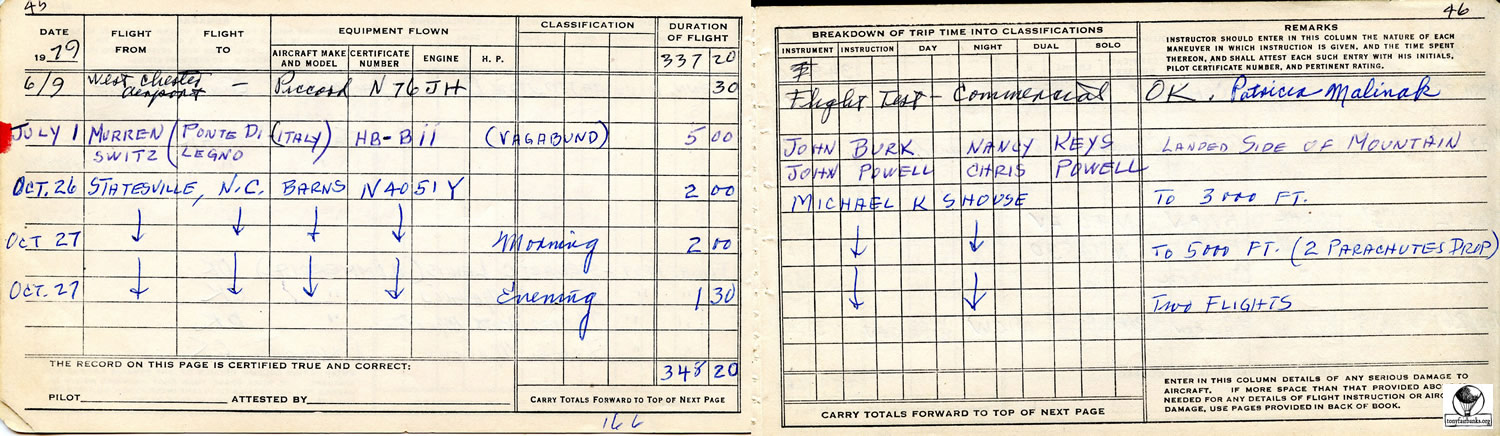 45
DATE
1979
FLIGHT FROM
FLIGHT TO
EQUIPMENT FLOWN
AIRCRAFT MAKE AND MODEL
CERTIFICATE NUMBER
ENGINE
H. P.
CLASSIFICATION
DURATION OF FLIGHT
337 20
6/9 West Chester airport — Piccard N76JH 30
JULY 1 MURREN SWITZ (PONTE DI LEGNO (ITALY) HB-BII (VAGABUND) 5 00
OCT. 26 STATESVILLE, N.C. BARNS N4051Y 2 00
OCT 27 ↓ ↓ ↓ ↓ Morning 2 00
OCT. 27 ↓ ↓ ↓ ↓ Evening 1 30
THE RECORD ON THIS PAGE IS CERTIFIED TRUE AND CORRECT:
348 20
PILOT ATTESTED BY
CARRY TOTALS FORWARD TO TOP OF NEXT PAGE
166
46
BREAKDOWN OF TRIP TIME INTO CLASSIFICATIONS
INSTRUMENT INSTRUCTION DAY NIGHT DUAL SOLO
REMARKS
INSTRUCTOR SHOULD ENTER IN THIS COLUMN THE NATURE OF EACH
MANEUVER IN WHICH INSTRUCTION IS GIVEN, AND THE TIME SPENT
THEREON, AND SHALL ATTEST EACH SUCH ENTRY WITH HIS INITIALS,
PILOT CERTIFICATE NUMBER, AND PERTINENT RATING.
Flight Test - Commercial OK. Patricia Malinak
JOHN BURK NANCY KEYS LANDED SIDE OF MOUNTAIN
JOHN POWELL CHRIS POWELL
MICHAEL K SHOUSE TO 3000 FT.
↓ ↓ TO 5000 FT. (2 PARACHUTES DROP)
↓ ↓ TWO FLIGHTS
CARRY TOTALS FORWARD TO TOP OF NEXT PAGE
ENTER IN THIS COLUMN DETAILS OF ANY SERIOUS DAMAGE TO
AIRCRAFT. IF MORE SPACE THAN THAT PROVIDED ABO
NEEDED FOR ANY DETAILS OF FLIGHT INSTRUCTION OR AIRC
DAMAGE, USE PAGES PROVIDED IN BACK OF BOOK.
tonyfairbanks.org